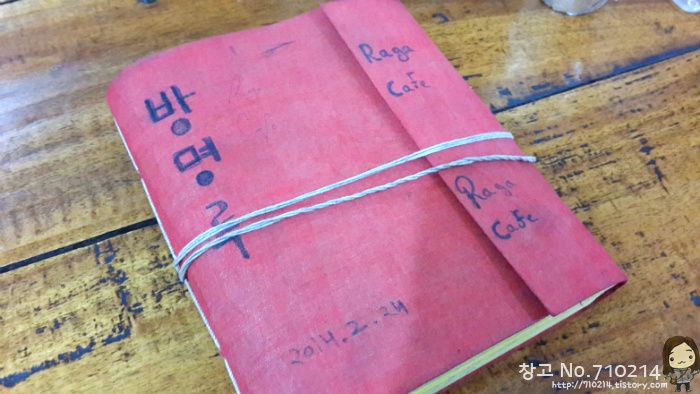 방명록
Raga
Cafe
Raga
Cafe
2014.2.24
창고 No.710214
http://710214.tistory.com